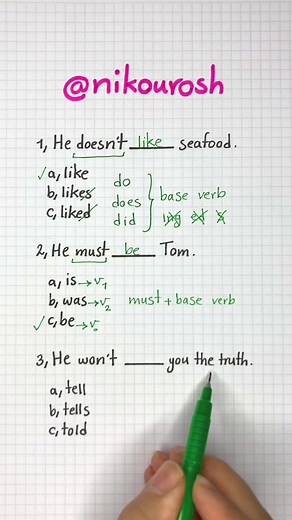 @nikourosh
1, He doesn't like seafood.
✓ a, like
b, likes
c, liked
do
does
did
} base verb
ing ed s
2, He must be Tom.
a, is → v₁
b, was → v₂
✓ c, be → v₀
must + base verb
3, He won't ____ you the truth.
a, tell
b, tells
c, told